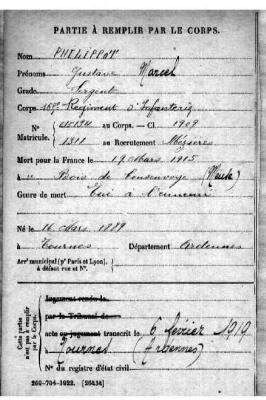 PARTIE À REMPLIR PAR LE CORPS.
Nom PHILIPPOT
Prénoms Gustave Marcel
Grade Sergent
Corps Régiment d'Infanterie
N° Matricule. au Corps. — Cl. 1909
1311 au Recrutement Mézières
Mort pour la France le 19 Mars 1915
à Bois de Consenvoye (Meuse)
Genre de mort Tué à l'ennemi
Né le 16 Mars 1889
à Tournes Département Ardennes
Arrt municipal (pr Paris et Lyon), à défaut rue et N°.
Cette partie n'est pas à remplir par le Corps.
Jugement rendu le
par le Tribunal de
acte ou jugement transcrit le 6 février 1919
à Tournes (Ardennes)
N° du registre d'état civil
269-704-1922. [26434]